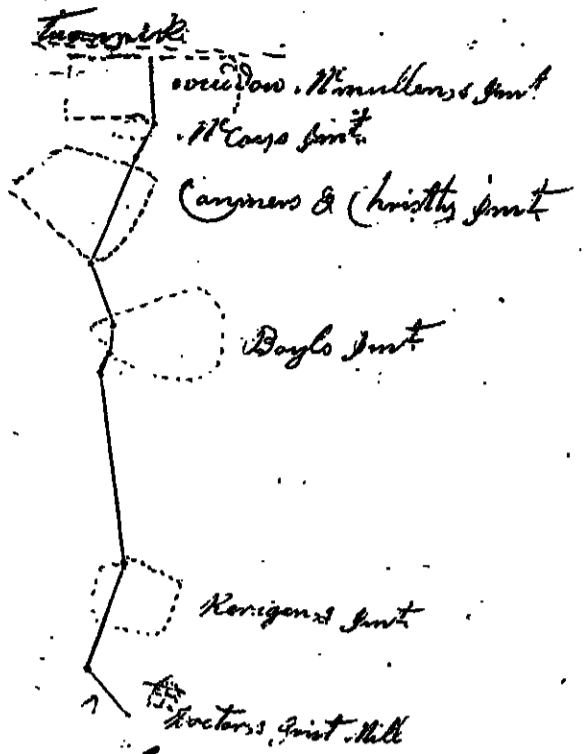 Turnpike
widow Mcmullen,s Imt
McCoys Imt
Caniners & Christty Imt
Boyls Imt
Kerigen,s Imt
Grist Mill